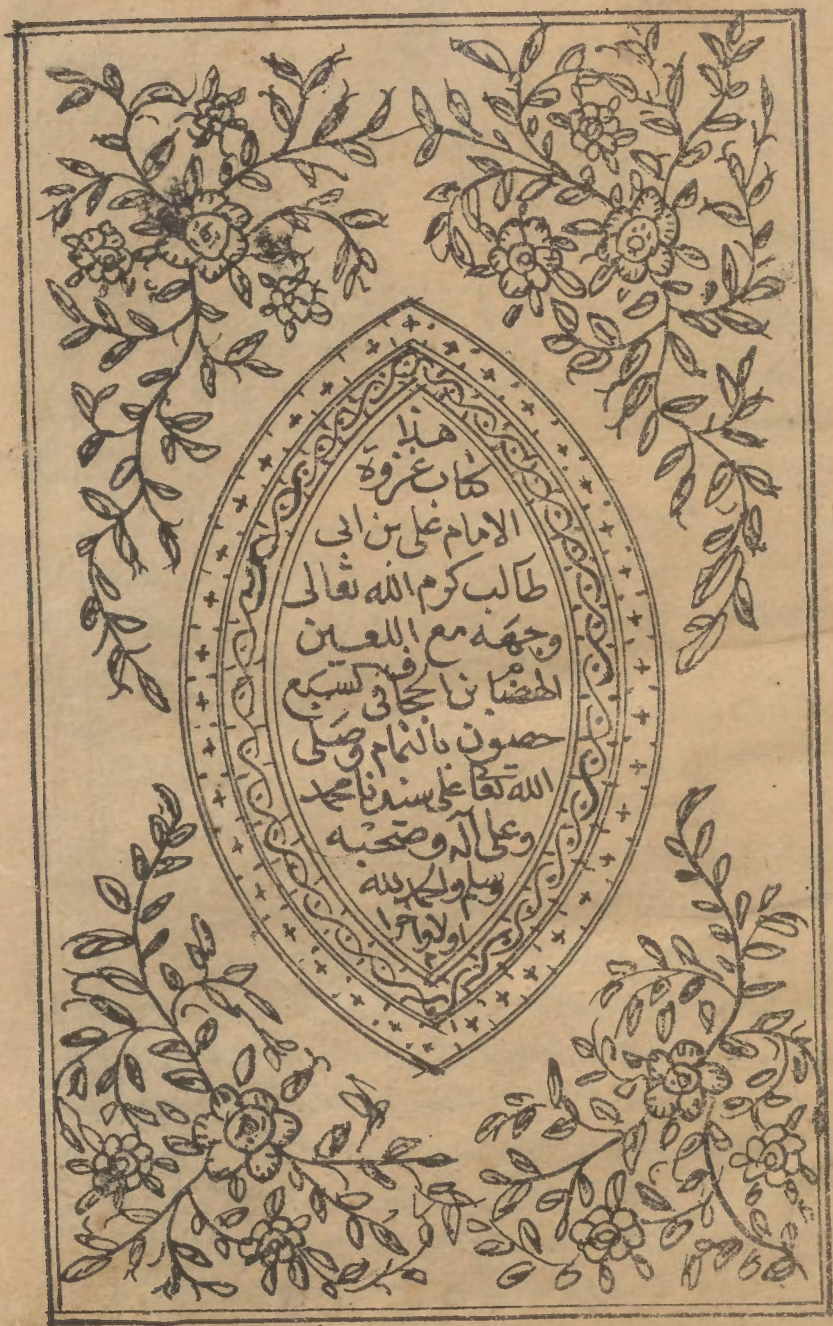 هذا
كتاب غزوة
الامام علي بن ابي
طالب كرم الله تعالى
وجهه مع اللعين
الهضام بن الحجاف في سبع
حصون بالتمام وصلى
الله تعا على سيدنا محمد
وعلى آله وصحبه
وسلم والحمد لله
اولا واخرا